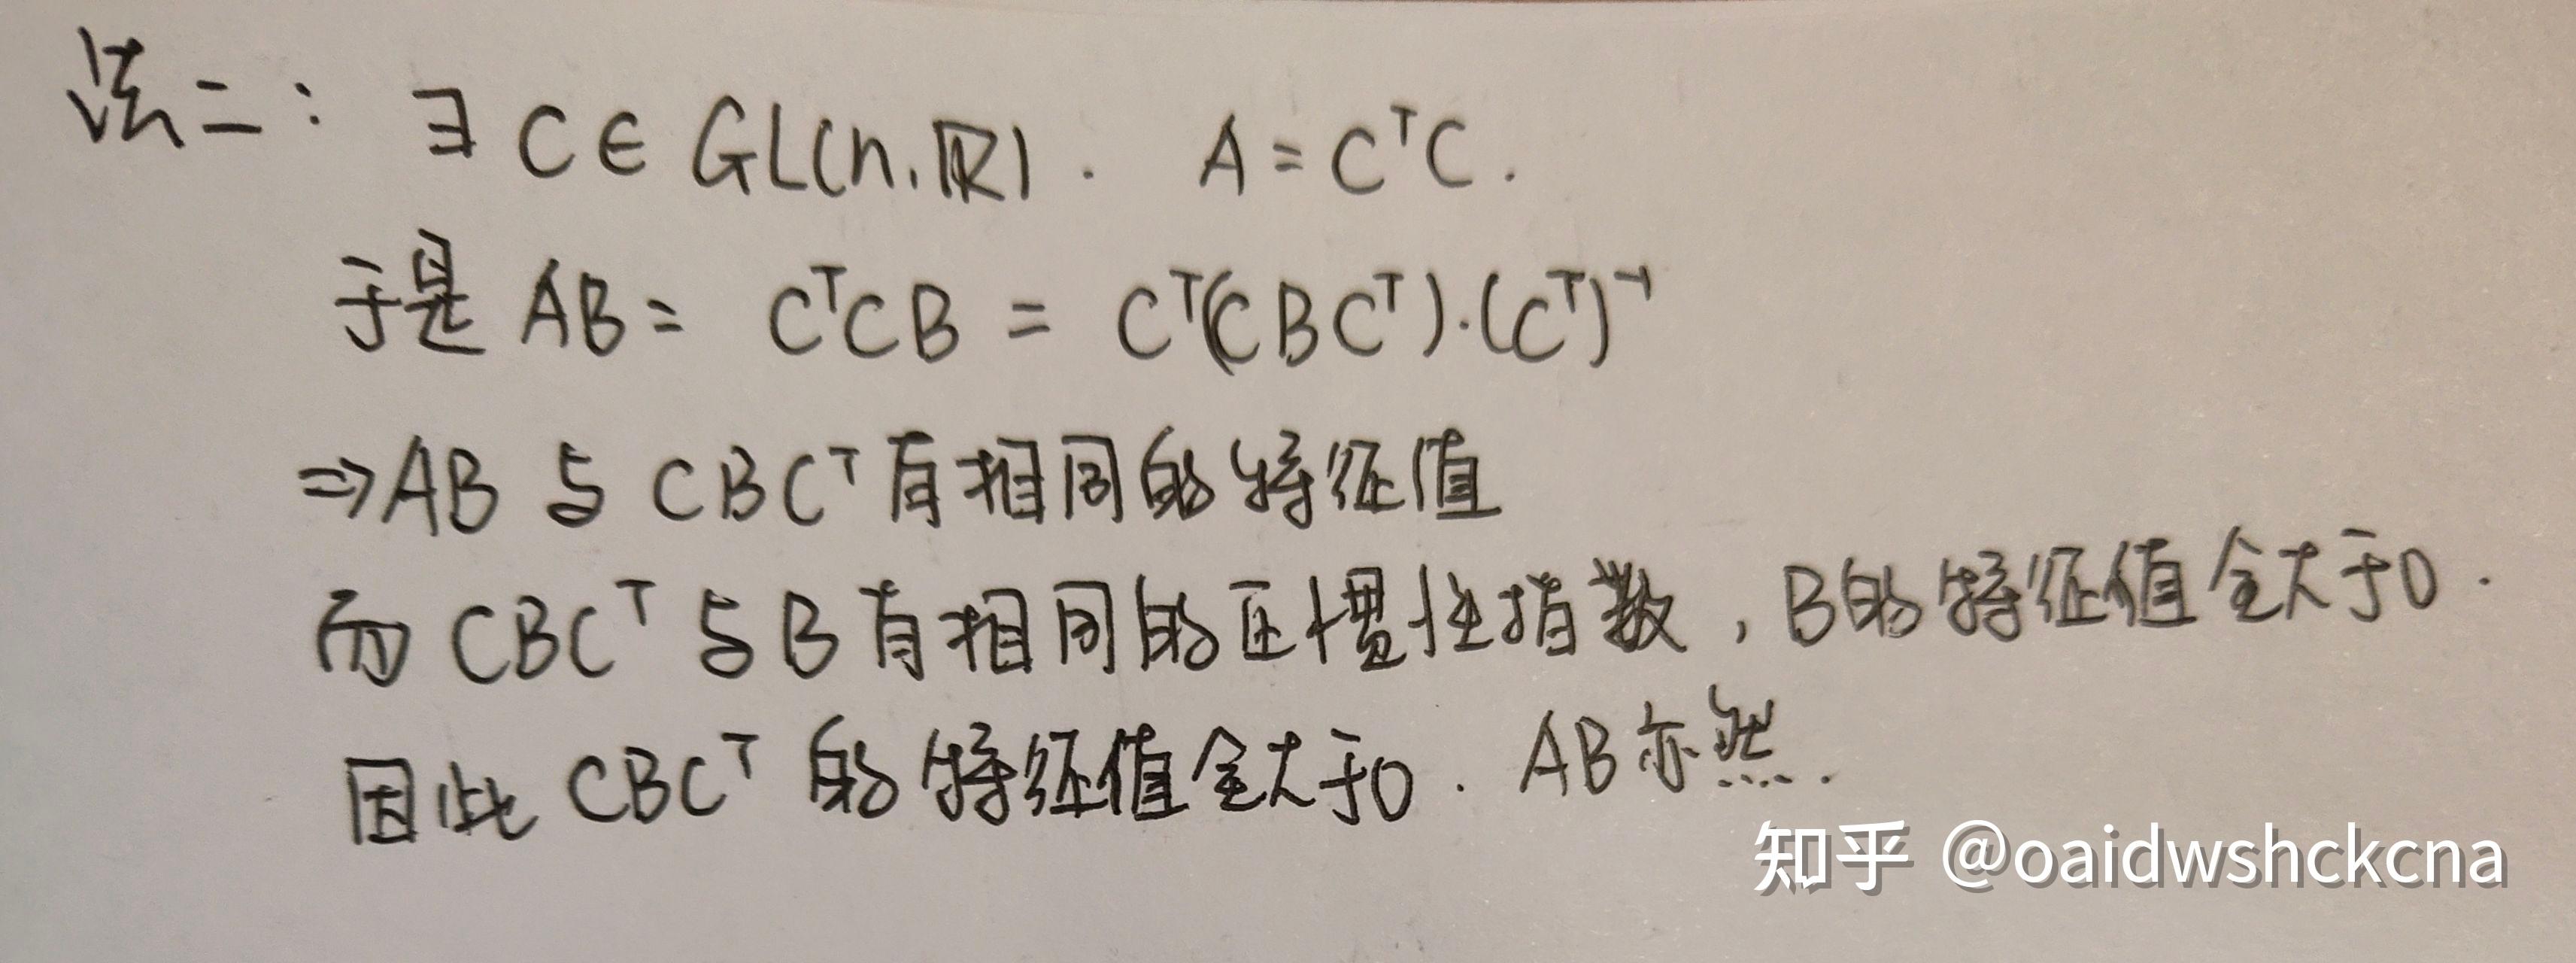 法二： ∃ C ∈ GL(n, ℝ). A = CᵀC.
于是 AB = CᵀCB = Cᵀ(CBCᵀ)·(Cᵀ)⁻¹
⇒ AB 与 CBCᵀ 有相同的特征值
而 CBCᵀ 与 B 有相同的正惯性指数，B的特征值全大于0.
因此 CBCᵀ 的特征值全大于0. AB亦然.
知乎 @oaidwshckcna